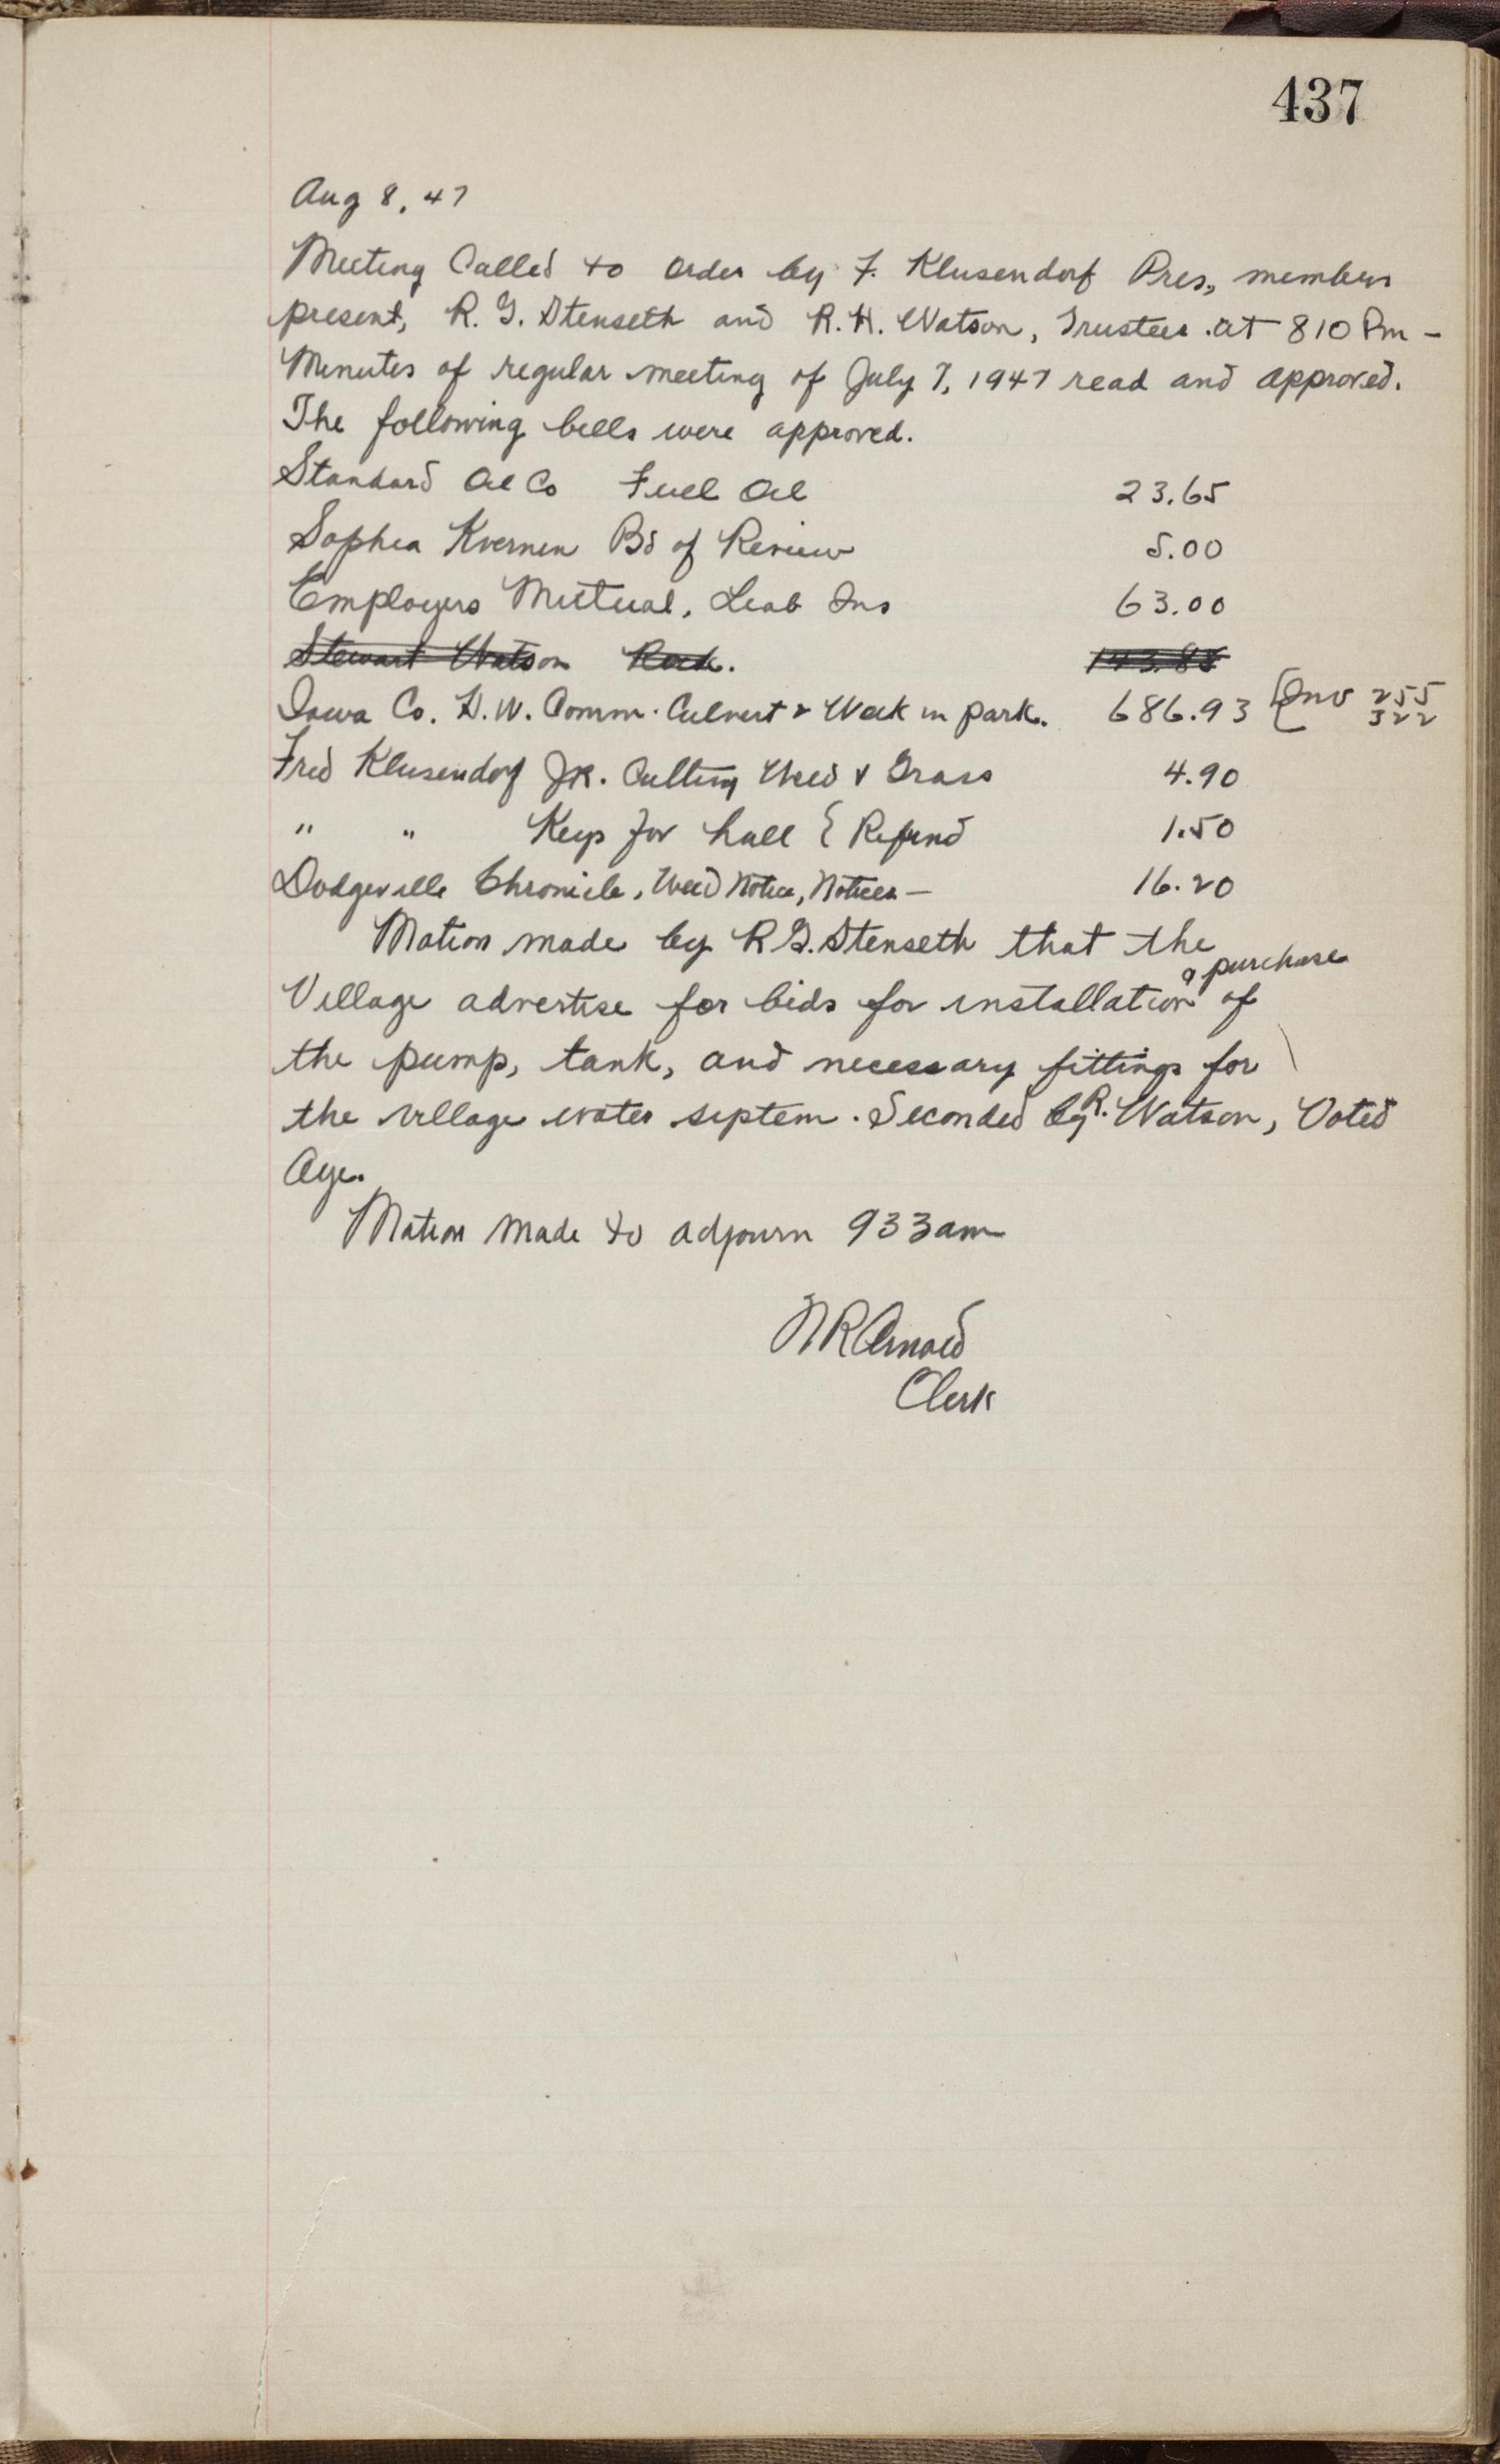 437
Aug 8, 47
Meeting Called to order by F. Klusendorf Pres, members
present, R. G. Stenseth and R. H. Watson, Trustees. at 810 Pm -
Minutes of regular meeting of July 7, 1947 read and approved.
The following bills were approved.
Standard Oil Co Fuel Oil 23.65
Sophia Kvernen Bd of Review 5.00
Employers Mutual, Liab Ins 63.00
Stewart Watson Rock. 143.88
Iowa Co. H.W. Comm. Culvert & Work in park. 686.93 { Inv 255
322
Fred Klusendorf JR. Cutting Weed & Grass 4.90
" " Keys for hall { Refund 1.50
Dodgeville Chronicle, Weed Notice, Notices - 16.20
Motion made by R G. Stenseth that the
& purchase
Village advertise for bids for installation of
the pump, tank, and necessary fittings for
the village water system. Seconded by R. Watson, Voted
Aye.
Motion made to adjourn 933 am
N R Arnold
Clerk